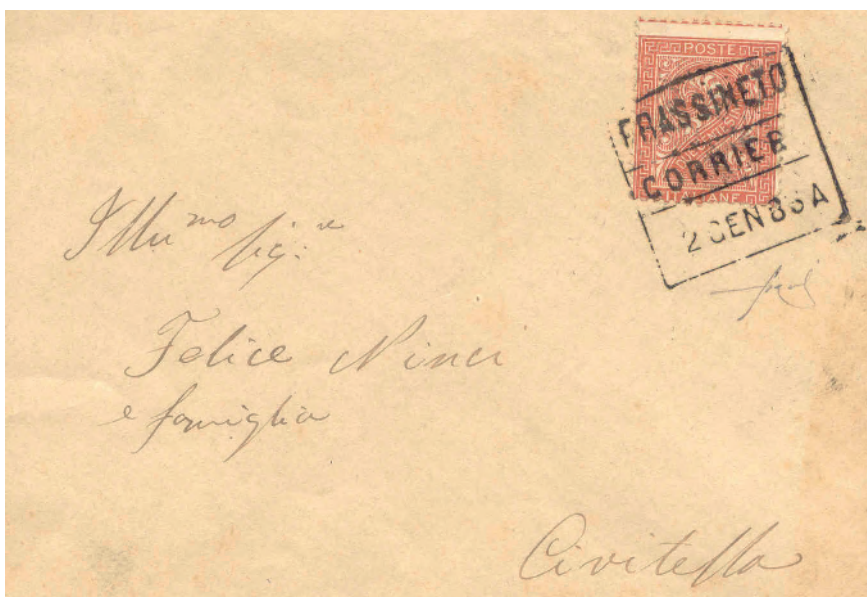 POSTE
FRASSINETO
CORRIER
2 GEN 83 A
ITALIANE
Illu^mo Sig:^re
Felice Ninci
e famiglia
Civitella